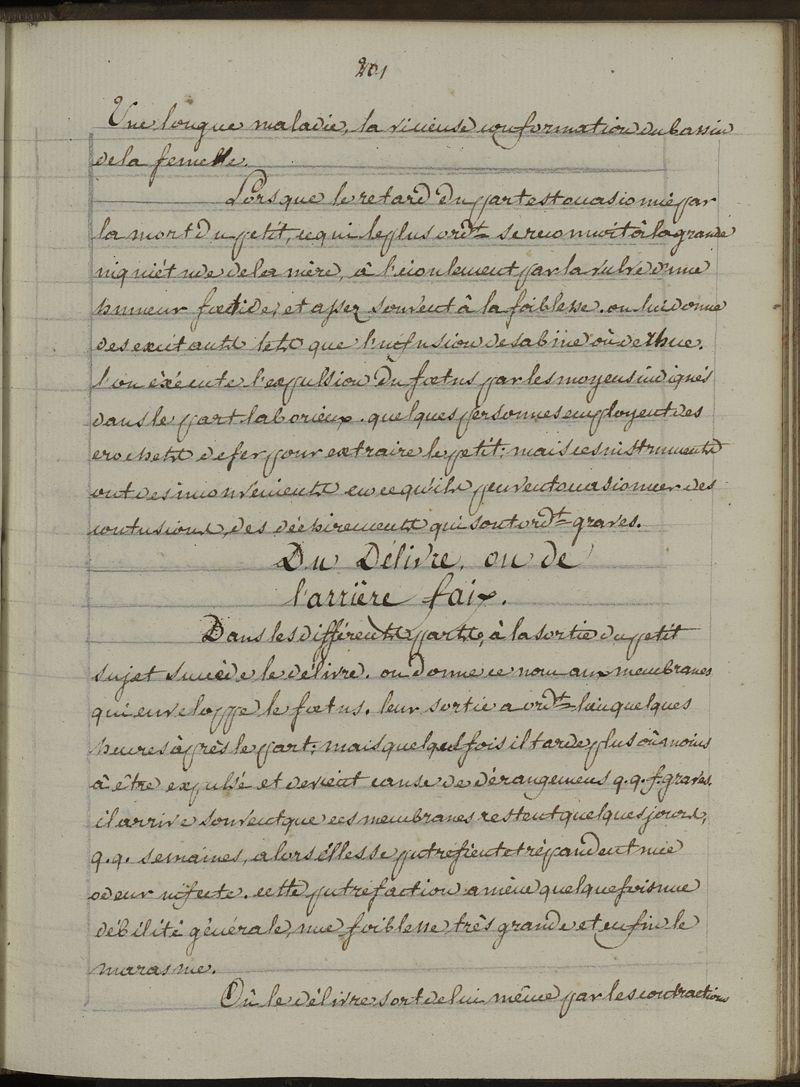 201
Une longue maladie, la vicieuse conformation du bassin
de la femelle.
Lorsque le retard du part est ocasionné par
la mort du petit, ce qui le plus ordt se reconnoit à la grande
inquiétude de la mère, à l'écoulement par la vulve d'une
humeur fœtide, et assez souvent à la foiblesse. on lui donne
des excitants tels que l'infusion de sabine où de rhue.
l'on éxécute l'expulsion du fœtus par les moyens indiqués
dans le part laborieux. quelques personnes employent des
crochets de fer pour extraire le petit; mais ces instruments
ont des inconvénients en ce qu'ils peuvent ocasionner des
contusions, des déchirements qui sont ordt graves.
Du Délivre, ou de
l'arrière faix.
Dans les différents parts, à la sortie du petit
sujet succède le délivre. on donne ce nom aux membranes
qui enveloppe le fœtus. leur sortie a ordt lieu quelques
heures après le part; mais quelques fois il tarde plus où moins
à être expulsé et devient cause de dérangemens q.q. f. graves.
il arrive souvent que ces membranes restent quelques jours,
q.q. semaines, alors elles se putrefient et répandent une
odeur infecte. cette putrefaction amène quelque fois une
débilité générale, une foiblesse très grande et enfin le
marasme.
Où le délivre sort de lui même par les contractions